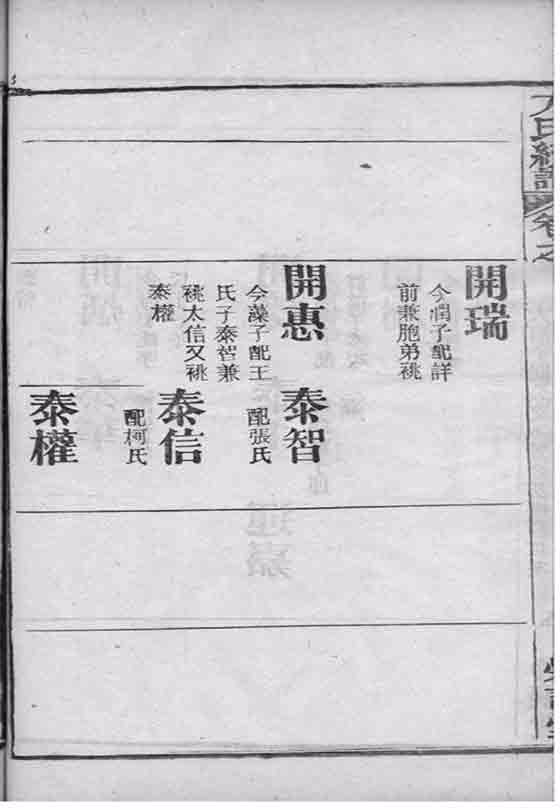 氏經譜
卷之
開瑞
今潤子配詳
前兼胞弟祧
開惠
今藻子配王
氏子泰智兼
祧太信又祧
泰權
泰智
配張氏
泰信
配柯氏
泰權